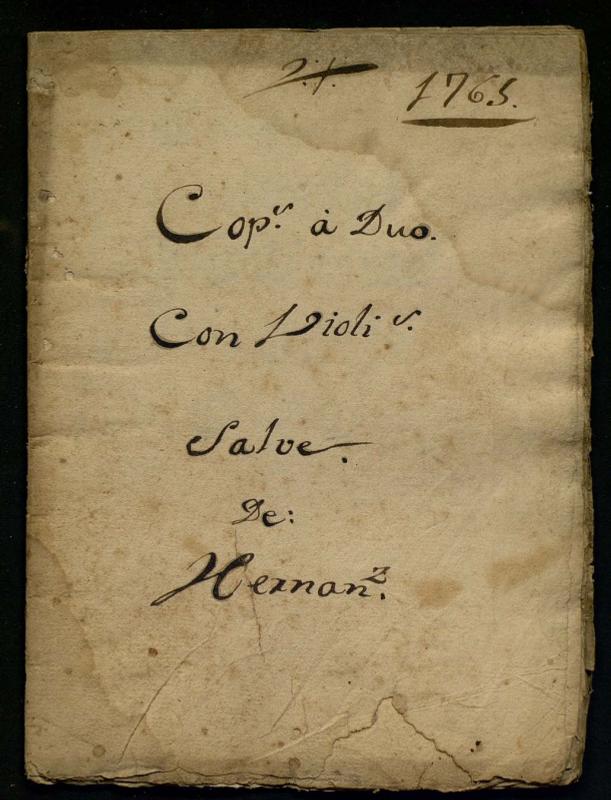 1765.
Cop.s à Duo.
Con Violi s.
Salve.
De:
Hernanz.